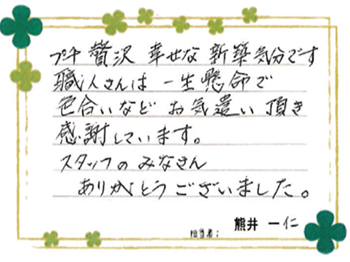 プチ贅沢 幸せな 新築気分です
職人さんは 一生懸命で
色合いなど お気遣い 頂き
感謝しています。
スタッフの みなさん
ありがとうございました。
担当者: 熊井 一仁